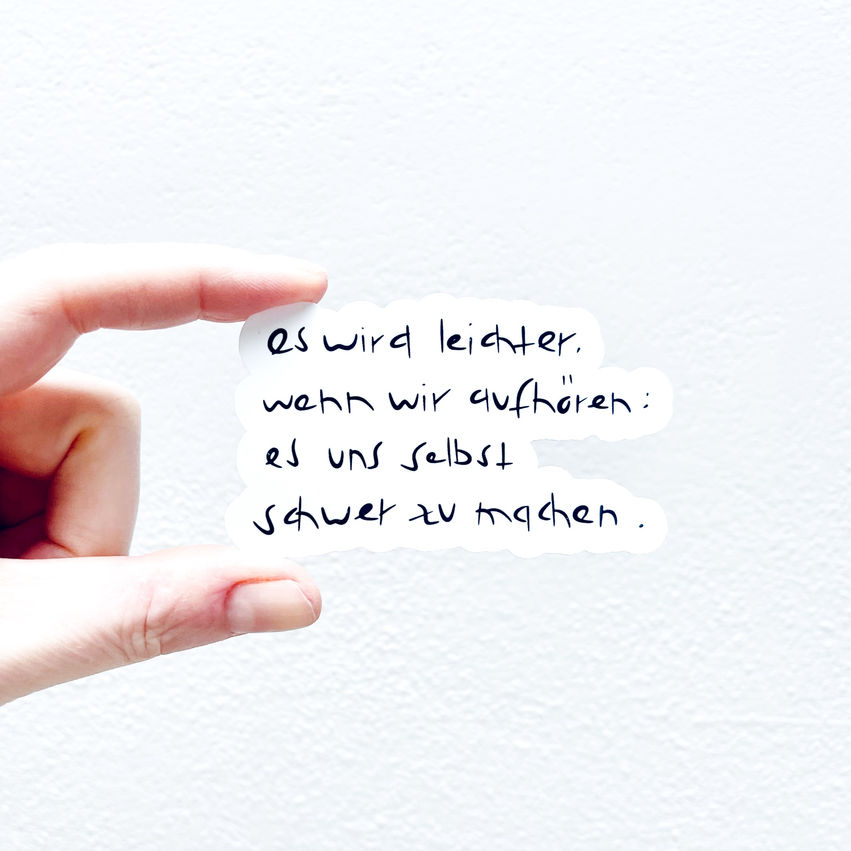 es wird leichter,
wenn wir aufhören:
es uns selbst
schwer zu machen.